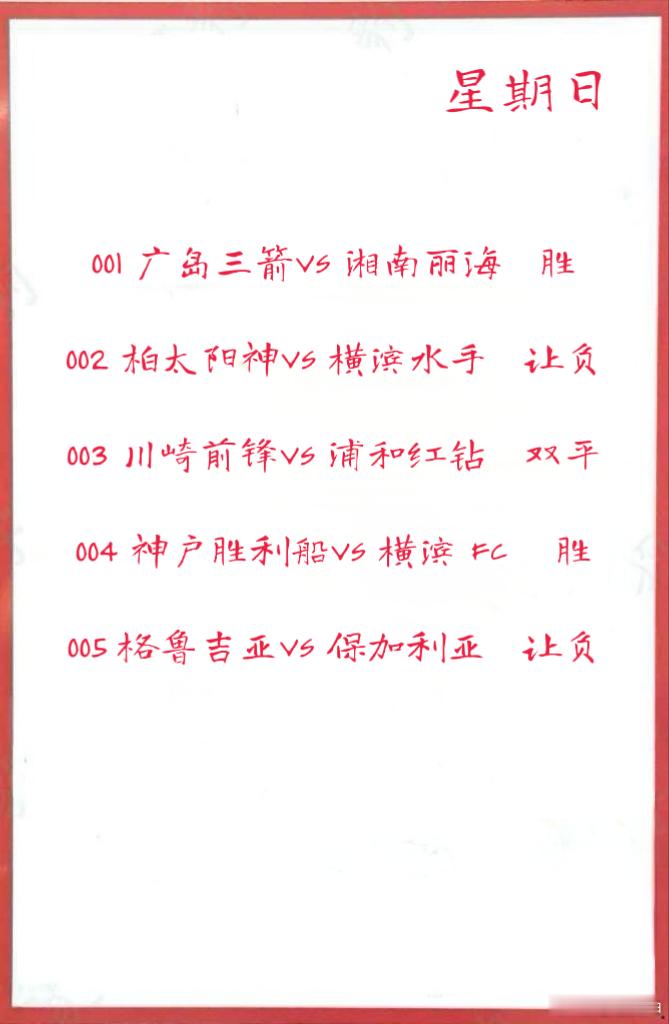 星期日
001 广岛三箭VS 湘南丽海 胜
002 柏太阳神VS 横滨水手 让负
003 川崎前锋VS 浦和红钻 双平
004 神户胜利船VS 横滨 FC 胜
005 格鲁吉亚VS 保加利亚 让负